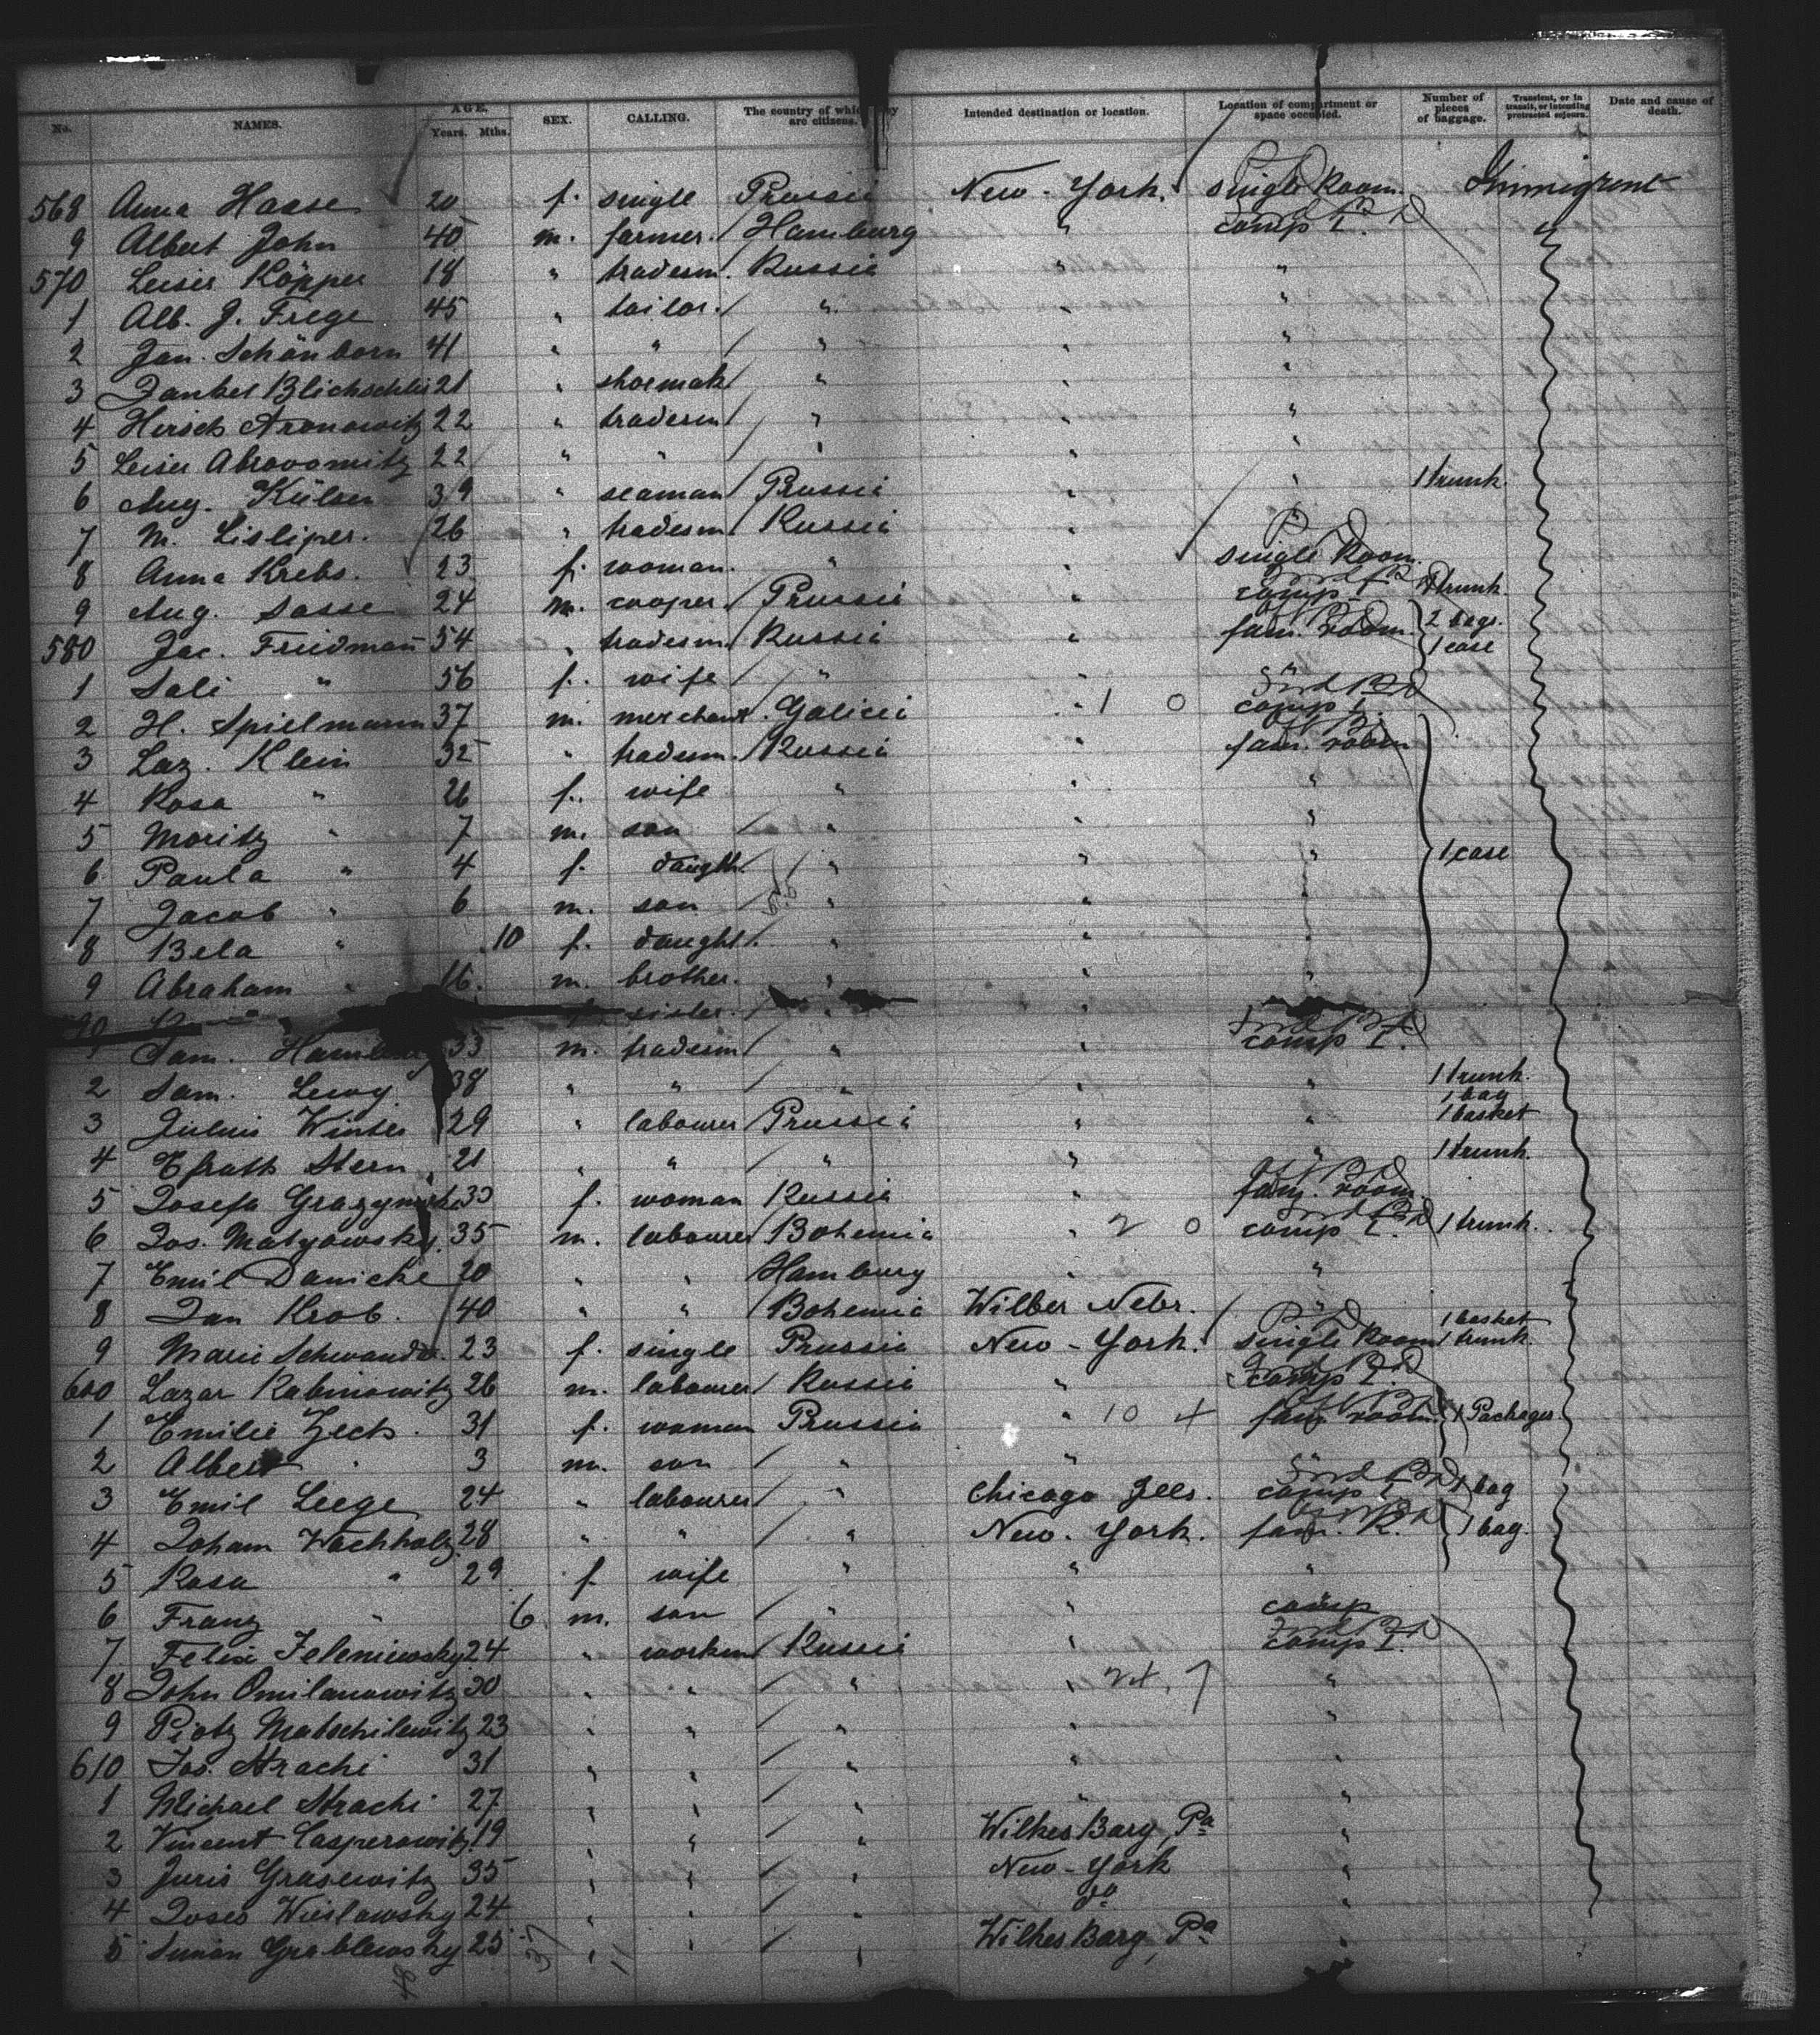 No. NAMES. AGE. Years. Mths. SEX. CALLING. The country of which they are citizens. Intended destination or location. Location of compartment or space occupied. Number of pieces of baggage. Transient, or in transit, or intending protracted sojourn. Date and cause of death.
568 Anna Haase 20 f. single Prussia New-York. single Room. Immigrent
9 Albert John 40 m. farmer. Hamburg " comp I.
570 Leiser Köpper 18 " tradesm. Russia " "
1 Alb. J. Frege 45 " tailor. " " "
2 Jan. Schönborn 41 " " " " "
3 21 " shoemak " " "
4 Hirsch Aronowitz 22 " tradesm " " "
5 Leiser 22 " " " " "
6 Aug. 39 " seaman Prussia " " 1 trunk.
7 M. Lisliper. 26 " tradesm Russia "
8 Anna Krebs. 23 f. woman. " " single Room.
9 Aug. Sasse 24 m. cooper. Prussia " comp I 1 trunk
580 Jac. Friedman 54 " tradesm Russia " fam. room. 2 bags. 1 case
1 Sali " 56 f. wife " "
2 H. Spielmann 37 m. merchant. Galicia " 1 0 comp I.
3 Laz. Klein 32 " tradesm. Russia " fam. room
4 Rosa " 26 f. wife " " "
5 Moritz " 7 m. son " " "
6 Paula " 4 f. daught. " " " 1 case
7 Jacob " 6 m. son " " "
8 Bela " 10 f. daught. " " "
9 Abraham " 16. m. brother. " " "
90 f sister. " "
1 Sam. 33 m. tradesm " " comp I.
2 Sam. Lewy 38 " " " " " 1 trunk. 1 bag
3 Julius Winter 29 " labourer Prussia " " 1 basket
4 Efrath Stern 21 " " " " " 1 trunk.
5 Josefa f. woman Russia " fam. room.
6 Jos. Matyowsky. 35 m. labourer Bohemia " 2 0 comp I. 1 trunk.
7 Emil Danicke 20 " " Hamburg " "
8 Jan Krob. 40 " " Bohemia Wilber Nebr. " 1 basket
9 Marie 23 f. single Prussia New-York. single Room 1 trunk.
600 Lazar Rabinowitz 26 m. labourer Russia " comp I.
1 Emilie Zech. 31 f. woman Prussia " 10 4 fam. room. Packages
2 Albert " 3 m. son " "
3 Emil Leege 24 " labourer " Chicago Jlls. comp I 1 bag
4 Joham Wachholz 28 " " " New-York. fam. R. 1 bag.
5 Rosa " 29 f wife " " "
6 Franz " 6 m. son " " comp
7 Felix Jeleniewsky 24 " workm Russia " comp I.
8 John Omilanowitz 30 " " " " 24. 7 "
9 Piotz Matschilewitz 23 " " " "
610 Jos. Strachi 31 " " " " "
1 Michael Strachi 27 " " " " "
2 Vincent Casperowitz 19 " " " Wilkes Bary, Pa "
3 Juris Grasewitz 35 " " " New-York "
4 Joseo Wieslawsky 24 " " " do "
5 Simon Grablewsky 25 " " " Wilkes Bary, Pa "